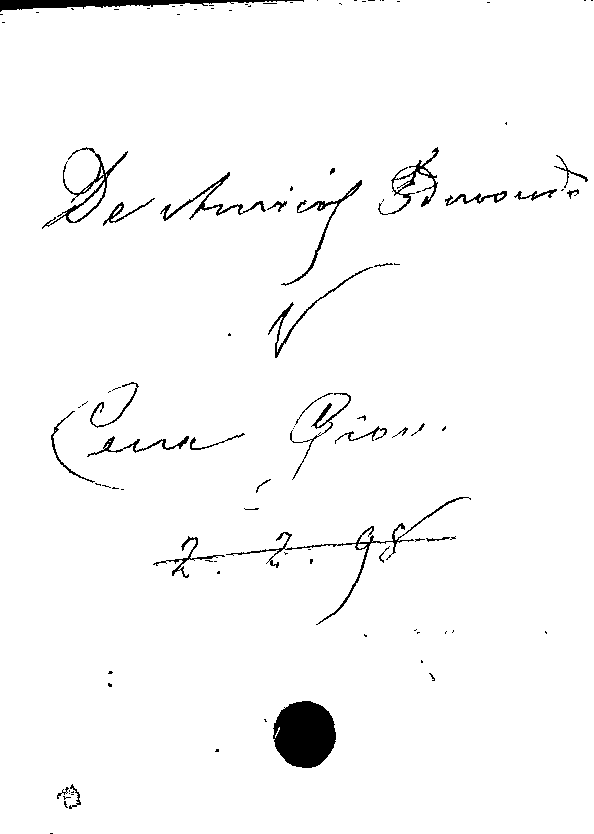 De Amicis Edmondo
V
Cena Giov.
2. 2. 98